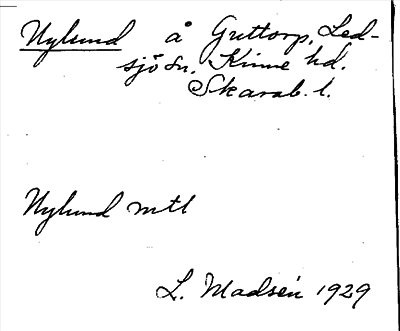 Nylund å Guttorp, Led-
sjö sn. Kinne hd.
Skarab. l.
Nylund mtl
L. Madsén 1929